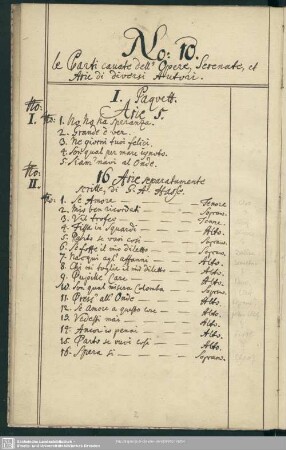 No: 10.
le Parti cavate dell' Opere, Serenate, et
Arie di diversi Autori.
I. Paquett.
Arie 5.
No: I. No: 1. Ha speranza.
2. Grande è ver.
3. Ne giorni tuoi felici.
4. Son qual per mare ignoto.
5. Siam navi al Onde.
No: II. 16 Arie separatamente
scritte, di G. A. Hasse.
No: 1. Se Amore — Tenore
2. Mio ben ricordati — Soprano.
3. Vil trofeo — Tenore
4. Fissa in Sguardi — Alto.
5. Parto se vuoi così — Soprano.
6. Se tutte il mio diletto — Soprano.
7. Nacqui agl' affanni — Alto.
8. Chi mi toglie il mio diletto — Alto.
9. Pupille Care — Alto.
10. Son qual misera Colomba — Soprano.
11. Press' all' Onde — Alto.
12. Se Amore a questo core — Alto.
13. Vedessi mai — Alto.
14. Ancor io penai — Alto.
15. Parto se vuoi così — Alto.
16. Spera sì — Soprano.